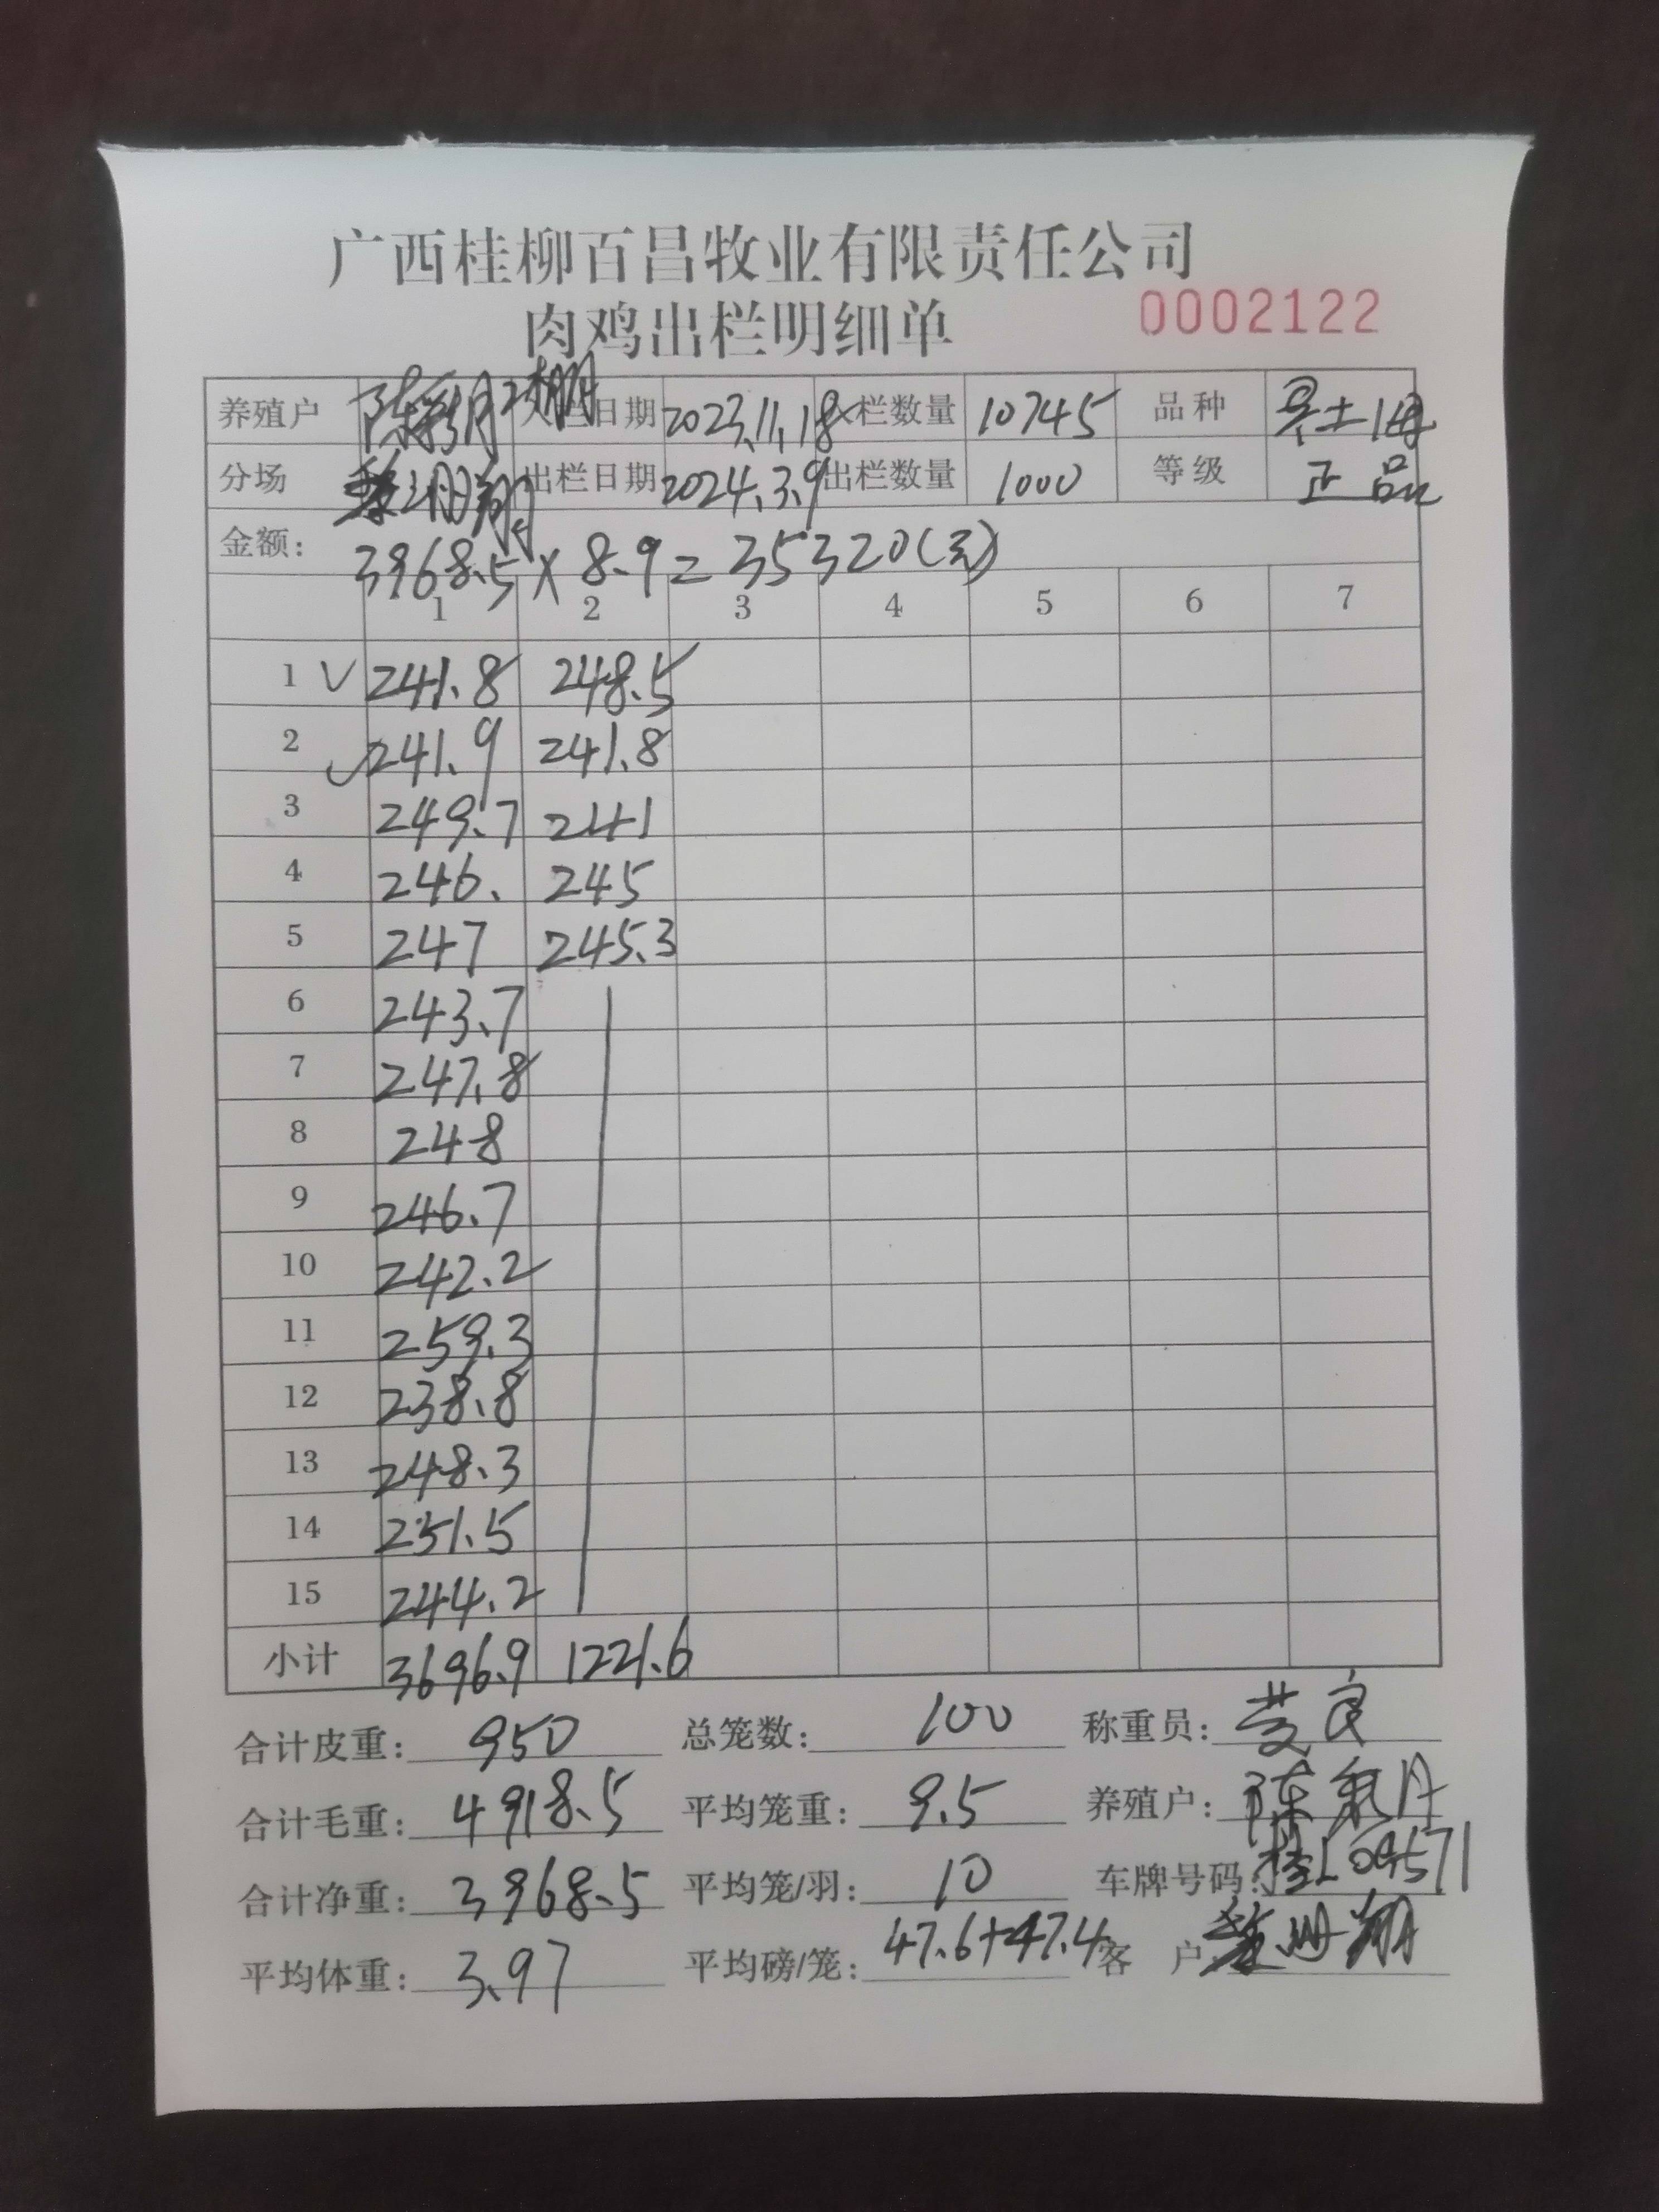 广西桂柳百昌牧业有限责任公司
肉鸡出栏明细单 0002122
养殖户 日期 2023.11.18 栏数量 10745 品种
分场 出栏日期 2024.3.9 出栏数量 1000 等级 正品
金额: 3968.5 × 8.9 = 35320(元)
1 2 3 4 5 6 7
1 ✓ 241.8 248.5
2 ✓ 241.9 241.8
3 249.7 241
4 246. 245
5 247 245.3
6 243.7
7 247.8
8 248
9 246.7
10 242.2
11 259.3
12 238.8
13 248.3
14 251.5
15 244.2
小计 3696.9 1221.6
合计皮重: 950 总笼数: 100 称重员:
合计毛重: 4918.5 平均笼重: 9.5 养殖户: 陈
合计净重: 3968.5 平均笼/羽: 10 车牌号码:
平均体重: 3.97 平均磅/笼: 47.6+47.4 客 户: